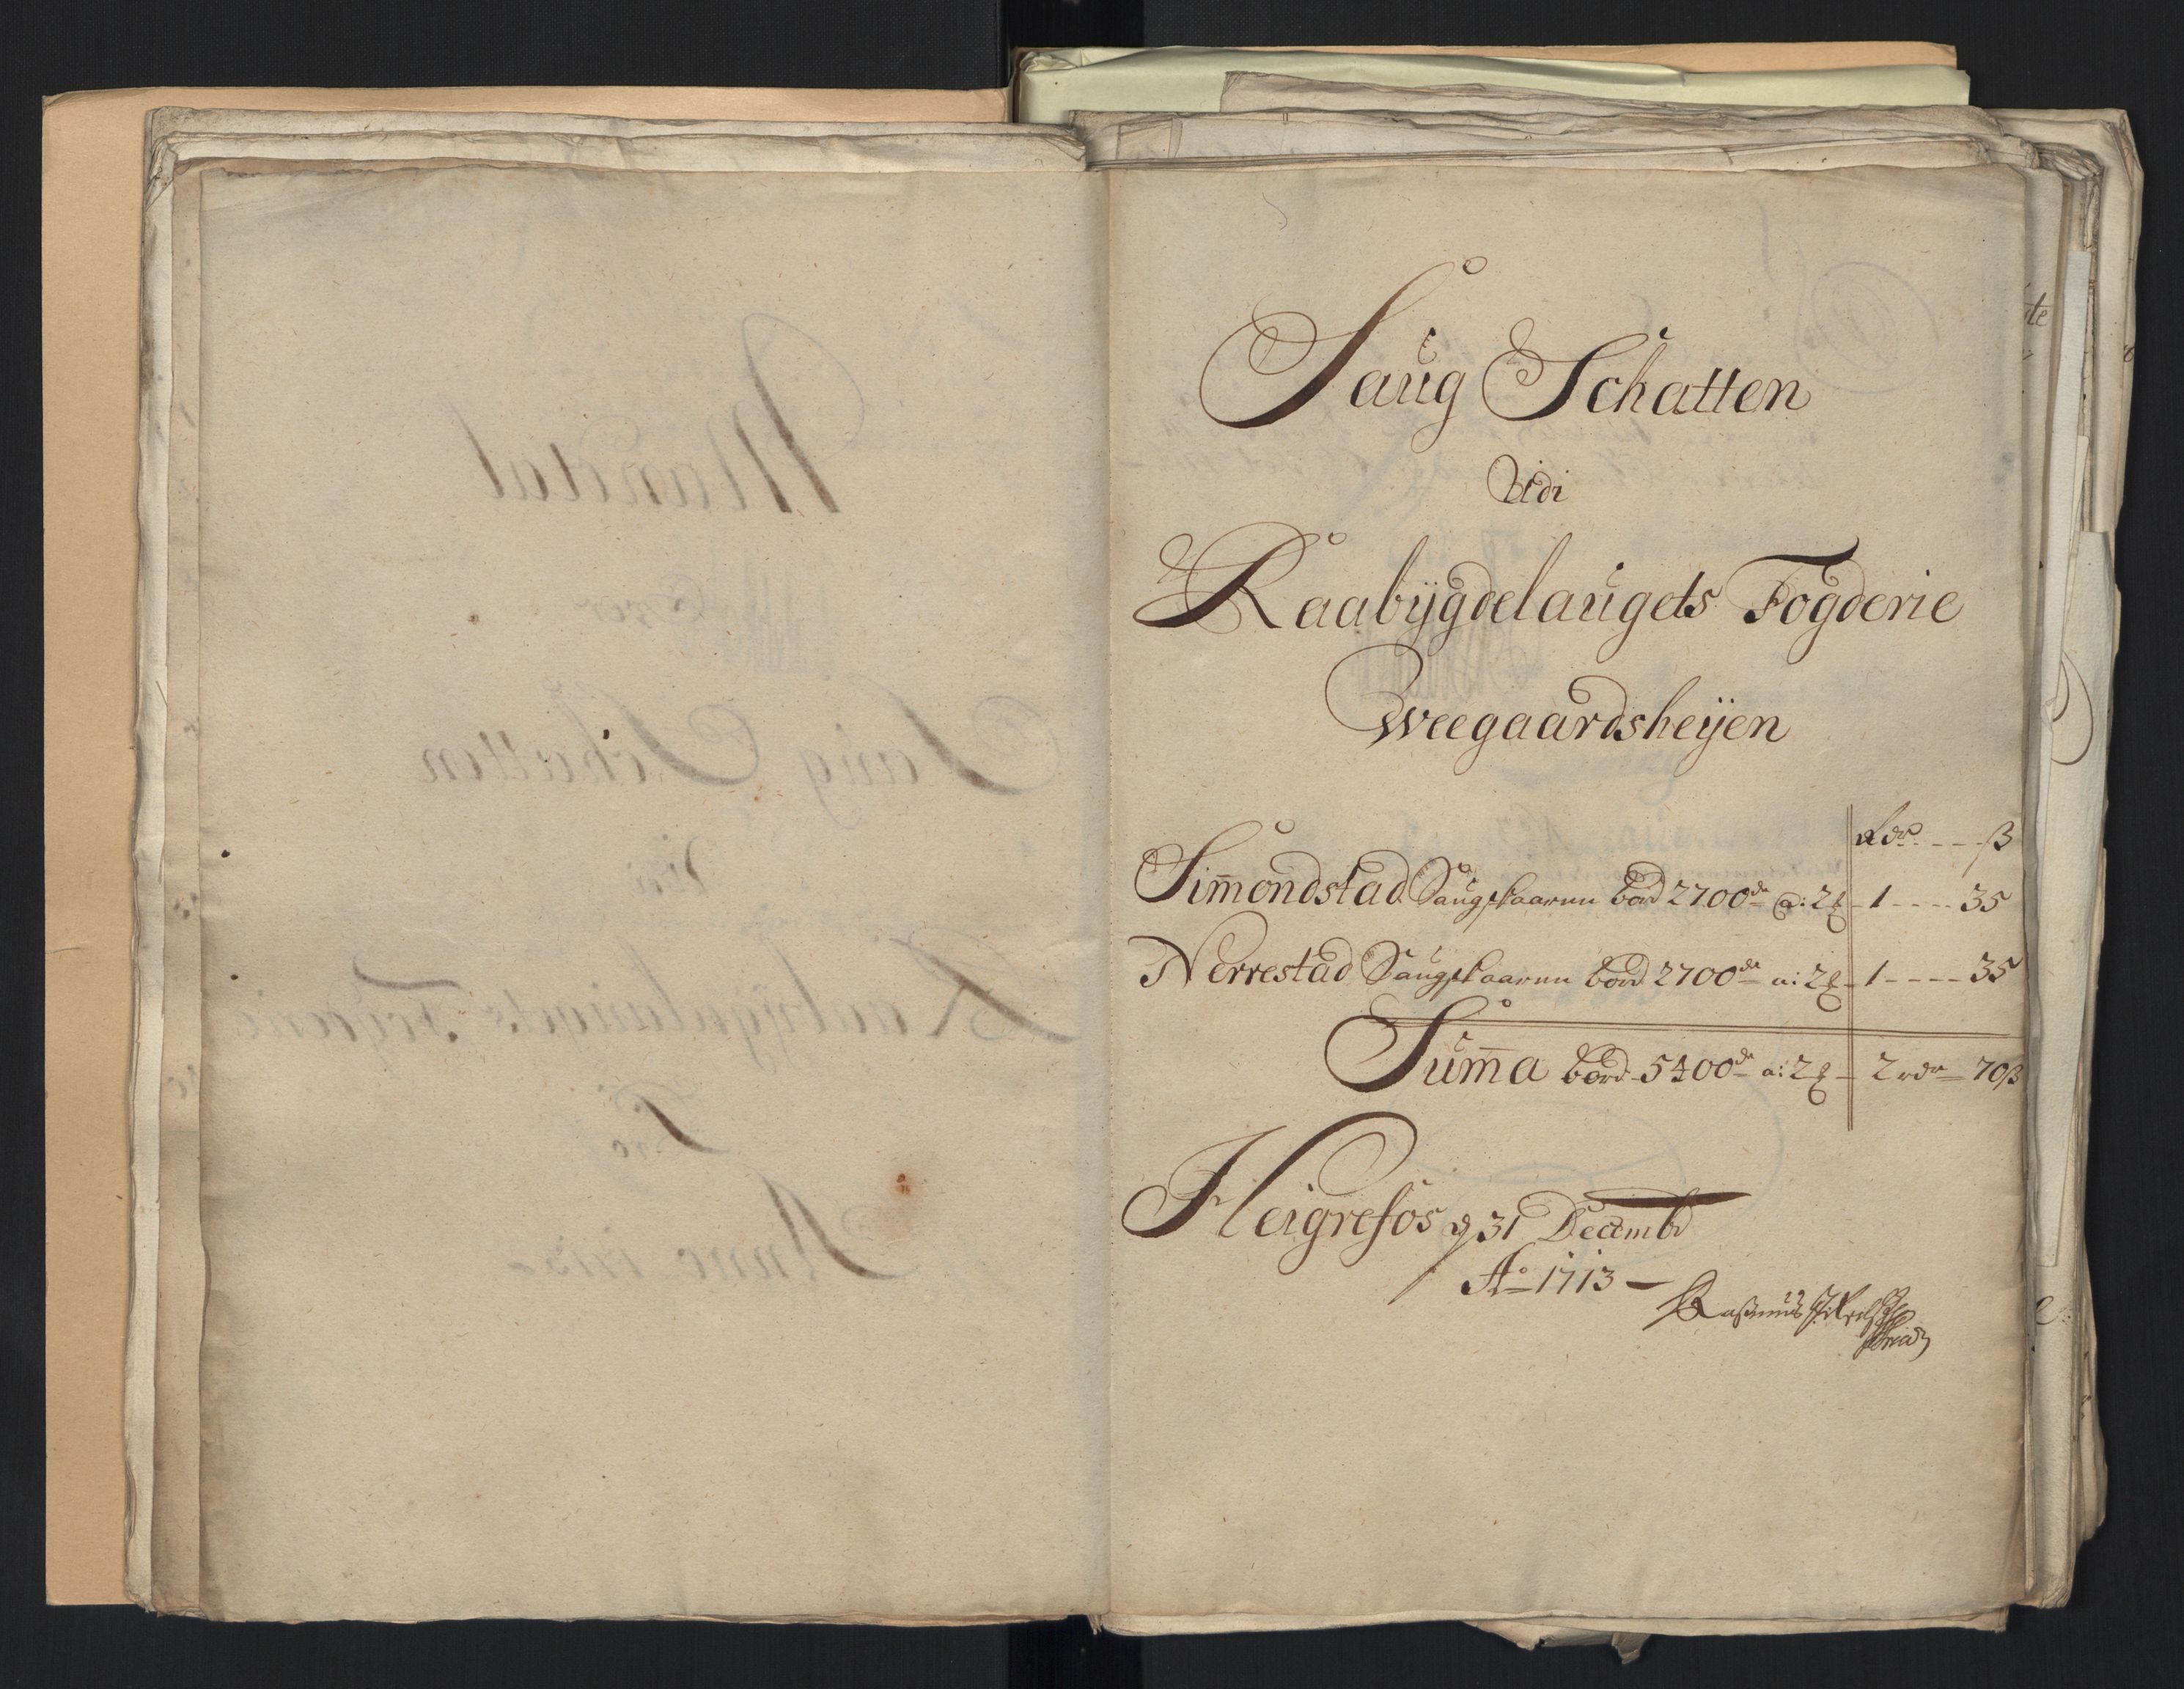 Saug Schatten
Udi
Raabÿgdelaugets Fogderie
Weegaardsheÿen
Rdr ---- ß
Sim̄ondstad Saugskaarnu bord 2700de @: 2 1 ---- 35
Nerrestad Saugskaarnu bord 2700de a: 2 1 ---- 35
Sum̄a bord 5400de a: 2 2 rdr 70ß
Heigrefos d 31 Decembr
Ao 1713 —
Rasmus